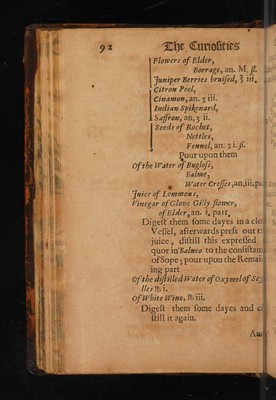 92 The Curiosities
Flowers of Elder,
Borrage, an. M. ß.
Juniper Berries bruised, ℥ iii.
Citron Peel,
Cinamon, an. ʒ iii.
Indian Spikenard,
Saffron, an. ʒ ii.
Seeds of Rochet,
Nettles,
Fennel, an. ʒ i. ß.
Pour upon them
Of the Water of Buglosse,
Balme,
Water Cresses, an, iii,
Juice of Lemmons,
Vinegar of Glove Gilly flower,
of Elder, an. i. part,
Digest them some dayes in a
Vessel, afterwards press out
juice, distill this expressed
quor in Balneo to the
of Sope; pour upon the
ing part
Of the distilled Water of Oxymel of
℔. i.
Of White Wine, ℔ iii.
Digest them some dayes and
still it again.